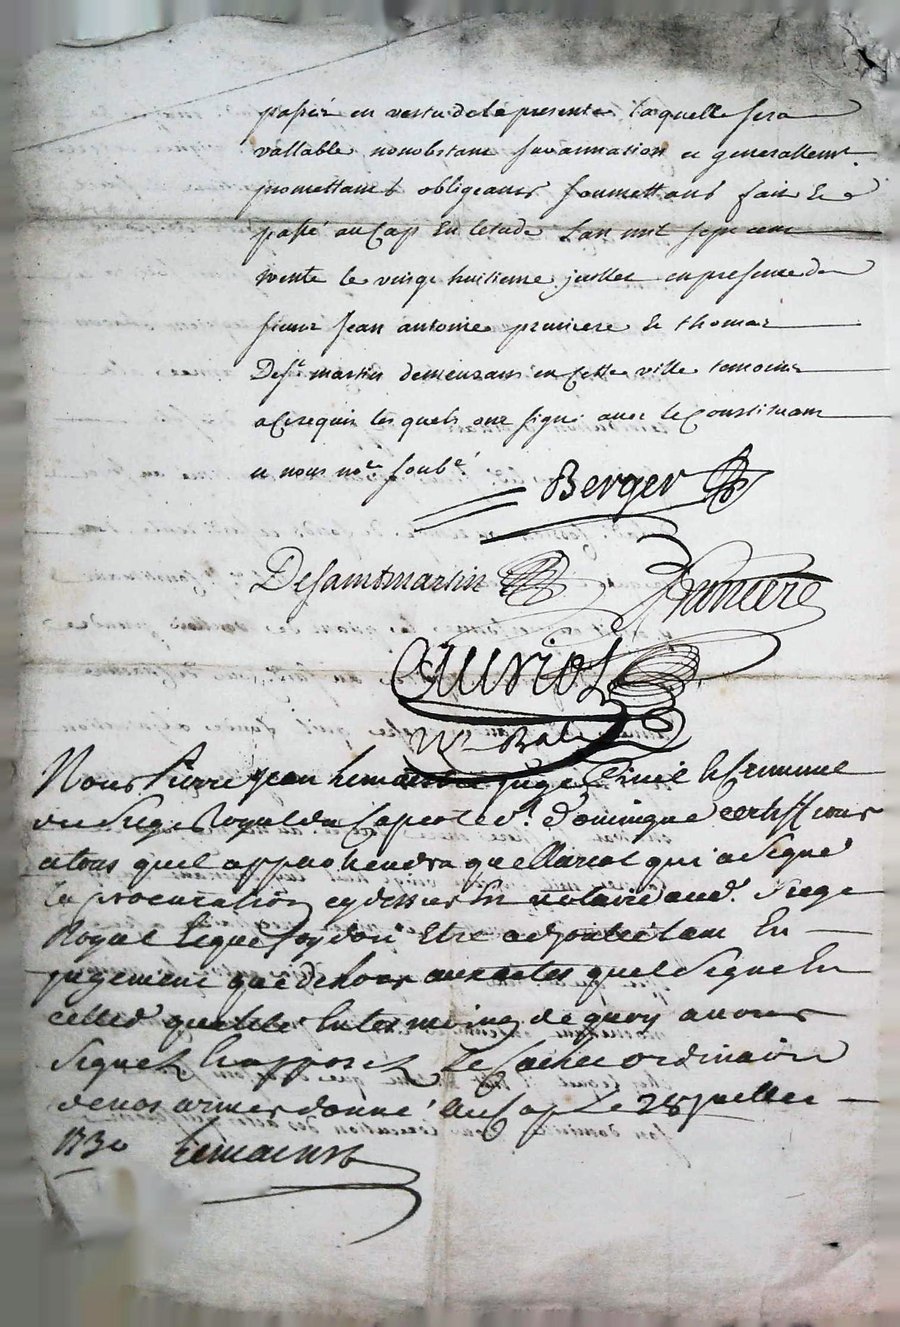 passée en vertu de la presente laquelle sera
vallable nonobstant surannation et generallemt.
promettant obligeant soumettant fait &
passé au Cap En letude Lan mil sept cent
trente le vingt huitieme juillet en presence de
sieur Jean antoine et thomas
Dest. martin demeurans en cette ville temoins
a ce requis les quels ont signé avec le Constituant
et nous nore. soubé.
Berger
Desaintmartin
auriol
Nre Roble
Nous Pierre Jean juge Civil & Criminel
du Siege Royal du Cap coste St. Domingue certiffions
a tous quil appartiendra que Mr auriol qui a Signé
la procuration cy dessus Est notaire aud. Siege
Royal & que foy doit Etre adjoutée tant En
jugement que dehors aux actes quil Signe En
cette qualité En tesmoing de quoy avons
Signé & apposé Le Cachet ordinaire
de nos armes donné au Cap le 28 juillet
1730